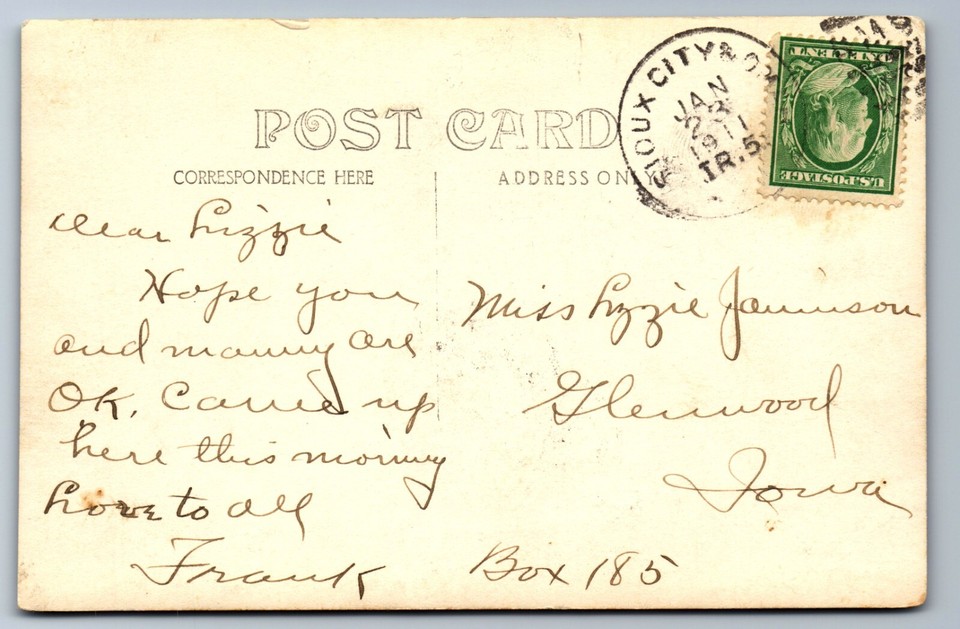 POST CARD
CORRESPONDENCE HERE
ADDRESS ONLY
SIOUX CITY & O
JAN
23
1911
TR.5
U.S. POSTAGE
Dear Lizzie
Hope you
and mamy are
OK, Came up
here this morning
Love to all
Frank
Miss Lizzie Jamison
Glenwood
Iowa
Box 185